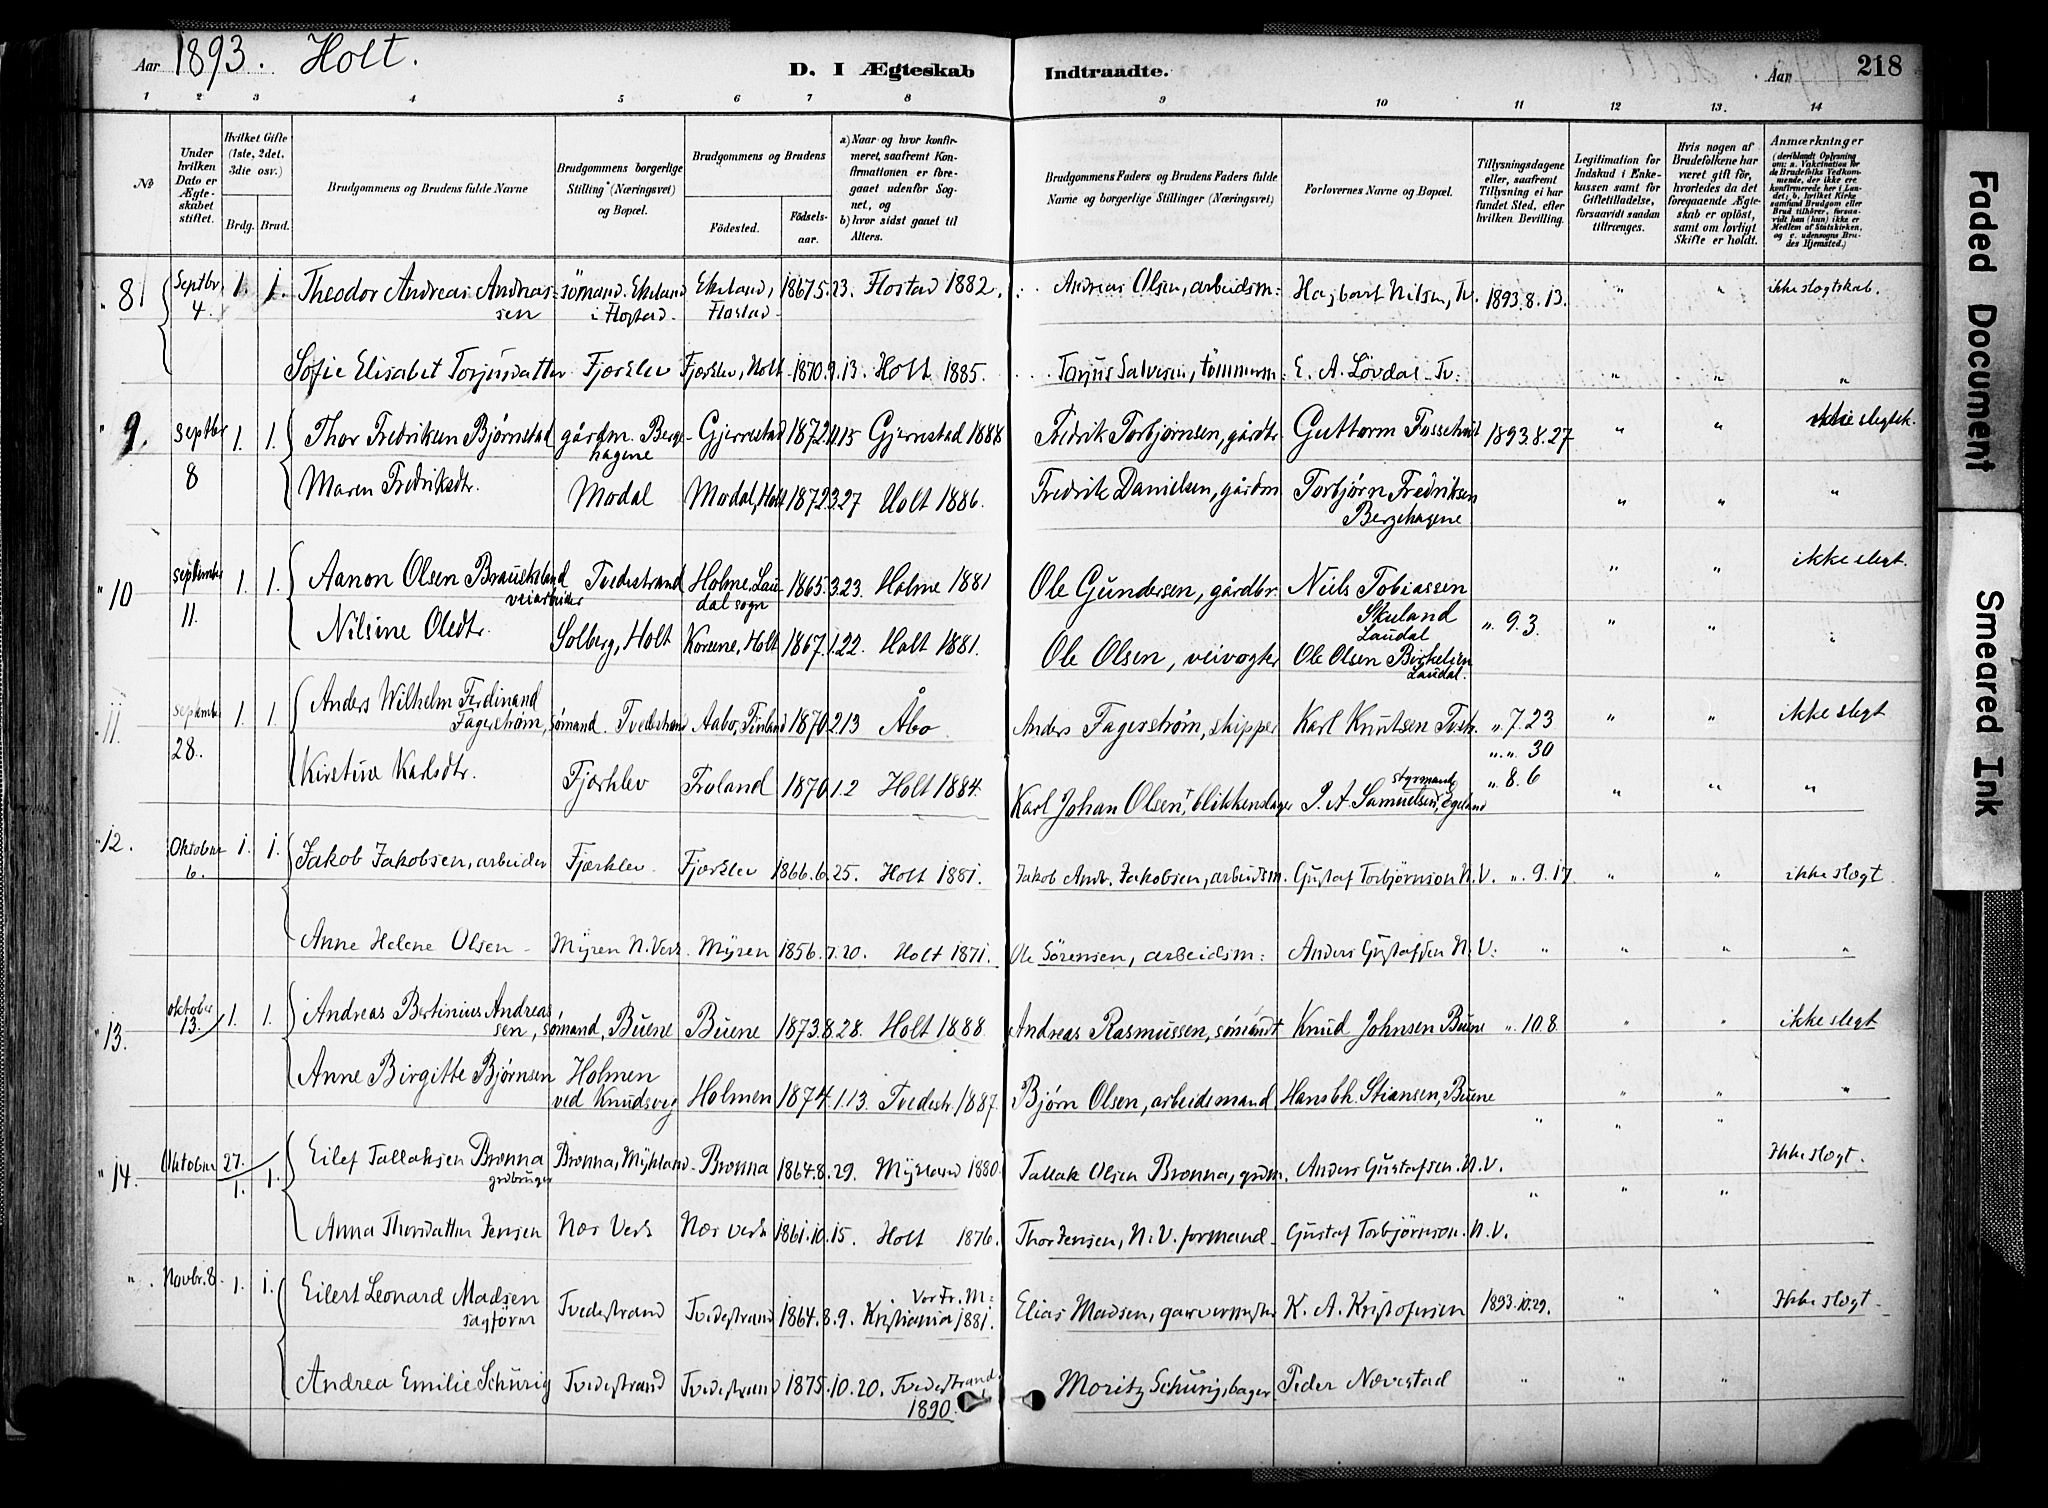 Aar 1893. Holt.
D. I Ægteskab Indtraadte.
Aar 218
1 2 3 4 5 6 7 8 9 10 11 12 13. 14
№
Under hvilken Dato er Ægteskabet stiftet.
Hvilket Gifte (1ste, 2det, 3die osv.)
Brdg. Brud.
Brudgommens og Brudens fulde Navne
Brudgommens borgerlige Stilling (Næringsvei) og Bopæl.
Brudgommens og Brudens
Fødested.
Fødselsaar.
a) Naar og hvor konfirmeret, saafremt Konfirmationen er foregaaet udenfor Sognet, og
b) hvor sidst gaaet til Alters.
Brudgommens Faders og Brudens Faders fulde Navne og borgerlige Stillinger (Næringsvei)
Forlovernes Navne og Bopæl.
Tillysningsdagene eller, saafremt Tillysning ei har fundet Sted, efter hvilken Bevilling.
Legitimation for Indskud i Enkekassen samt for Giftetilladelse, forsaavidt saadan tiltrænges.
Hvis nogen af Brudefolkene har været gift før, hvorledes da det foregaaende Ægteskab er opløst, samt om lovligt Skifte er holdt.
Anmærkninger (deriblandt Oplysning om: a. Vakcination for de Brudefolks Vedkommende, der ikke ere konfirmerede her i Landet; b. hvilket Kirkesamfund Brudgom eller Brud tilhører, forsaavidt han (hun) ikke er Medlem af Statskirken, og c. udensogns Brudes Hjemsted.)
8 Septbr 4. 1. 1. Theodor Andreas Andreassen sømand. Ekeland i Flostad Ekeland, Flostad 1867.5.23. Flostad 1882. Andreas Olsen, arbeidsm: Hagbart Nilsen, Tv. 1893.8.13. " " ikke slegtskab.
Sofie Elisabet Torjusdatter Fjærklev Fjærklev, Holt 1870.9.13. Holt 1885. Torjus Salvesen, tømmerm: E. A. Løvdal Tv: " " "
" 9. Septbr 8 1. 1. Thor Fredriksen Bjørnstad gårdm. Bergehagene Gjerrestad 1872.4.15 Gjerrestad 1888 Fredrik Torbjørnsen, gårdbr Guttorm Fossetveit 1893.8.27 " " ikke slegtsk.
Maren Fredriksdtr. Modal Modal, Holt 1872.3.27 Holt 1886. Fredrik Danielsen, gårdm Torbjørn Fredriksen Bergehagene " " "
" 10 September 11. 1. 1. Aanon Olsen Brauekeland veiarbeider Tvedestrand Holme, Laudal sogn 1865.3.23. Holme 1881 Ole Gundersen, gårdbr. Niels Tobiassen Skuland Laudal " 9.3. " " ikke slegt.
Nilsine Olsdtr. Solberg, Holt Korsene, Holt 1867.1.22. Holt 1881. Ole Olsen, veivogter Ole Olsen Birkelien Laudal. " " "
" 11. September 28. 1. 1. Anders Wilhelm Ferdinand Fagerstrøm, sømand. Tvedestrand Aabo, Finland 1870.2.13 Åbo Anders Fagerstrøm, skipper Karl Knutsen Tvstr. " 7.23 " " ikke slegt
" " 30
Kirstine Karlsdtr. Fjærklev Froland 1870.1.2 Holt 1884. Karl Johan Olsen, blikkenslager P. A. Samuelsen, styrmand Egeland " 8.6 " " "
" 12. Oktober 6. 1. 1. Jakob Jakobsen, arbeider Fjærklev Fjærklev 1866.6.25. Holt 1881. Jakob Andr. Jakobsen, arbeidsm. Gustaf Torbjørnson N.V. ". 9.17. " " ikke slegt.
Anne Helene Olsen Myren N. Verk Myren 1856.7.20. Holt 1871. Ole Sørensen, arbeidsm: Anders Gustafsen N.V: " " " "
" 13. Oktober 13. 1. 1. Andreas Bertinius Andreassen, sømand, Buene Buene 1873.8.28. Holt 1888 Andreas Rasmussen, sømand Knud Johnsen Buene " 10.8 " " ikke slegt
Anne Birgitte Bjørnsen Holmen ved Knudsveg Holmen 1874.1.13. Tvedestr. 1887. Bjørn Olsen, arbeidsmand. Hans Chr. Stiansen, Buene " " " "
" 14. Oktober 27. 1. 1. Eilef Tallaksen Brønna grdbruger Brønna, Mykland Brønna 1864.8.29. Mykland 1880. Tallak Olsen Brønna, grdm. Anders Gustafsen. N.V. " " " Ikke slegt.
Anna Thorsdatter Jensen Næs Verk Næs Verk 1861.10.15. Holt 1876. Thor Jensen, N.V. formand Gustaf Torbjørnson. N.V.
" . Novbr. 8. 1. 1. Eilert Leonard Madsen sagfører Tvedestrand Tvedestrand 1864.8.9. Vor Fr. M: Kristiania 1881. Elias Madsen, garvermester K. A. Kristofersen 1893.10.29. " " Ikke slegt
Andrea Emilie Schurig Tvedestrand Tvedestrand 1875.10.20. Tvedestrand 1890. Moritz Schurig, bager Peder Nævestad " " " "
Faded Document
Smeared Ink